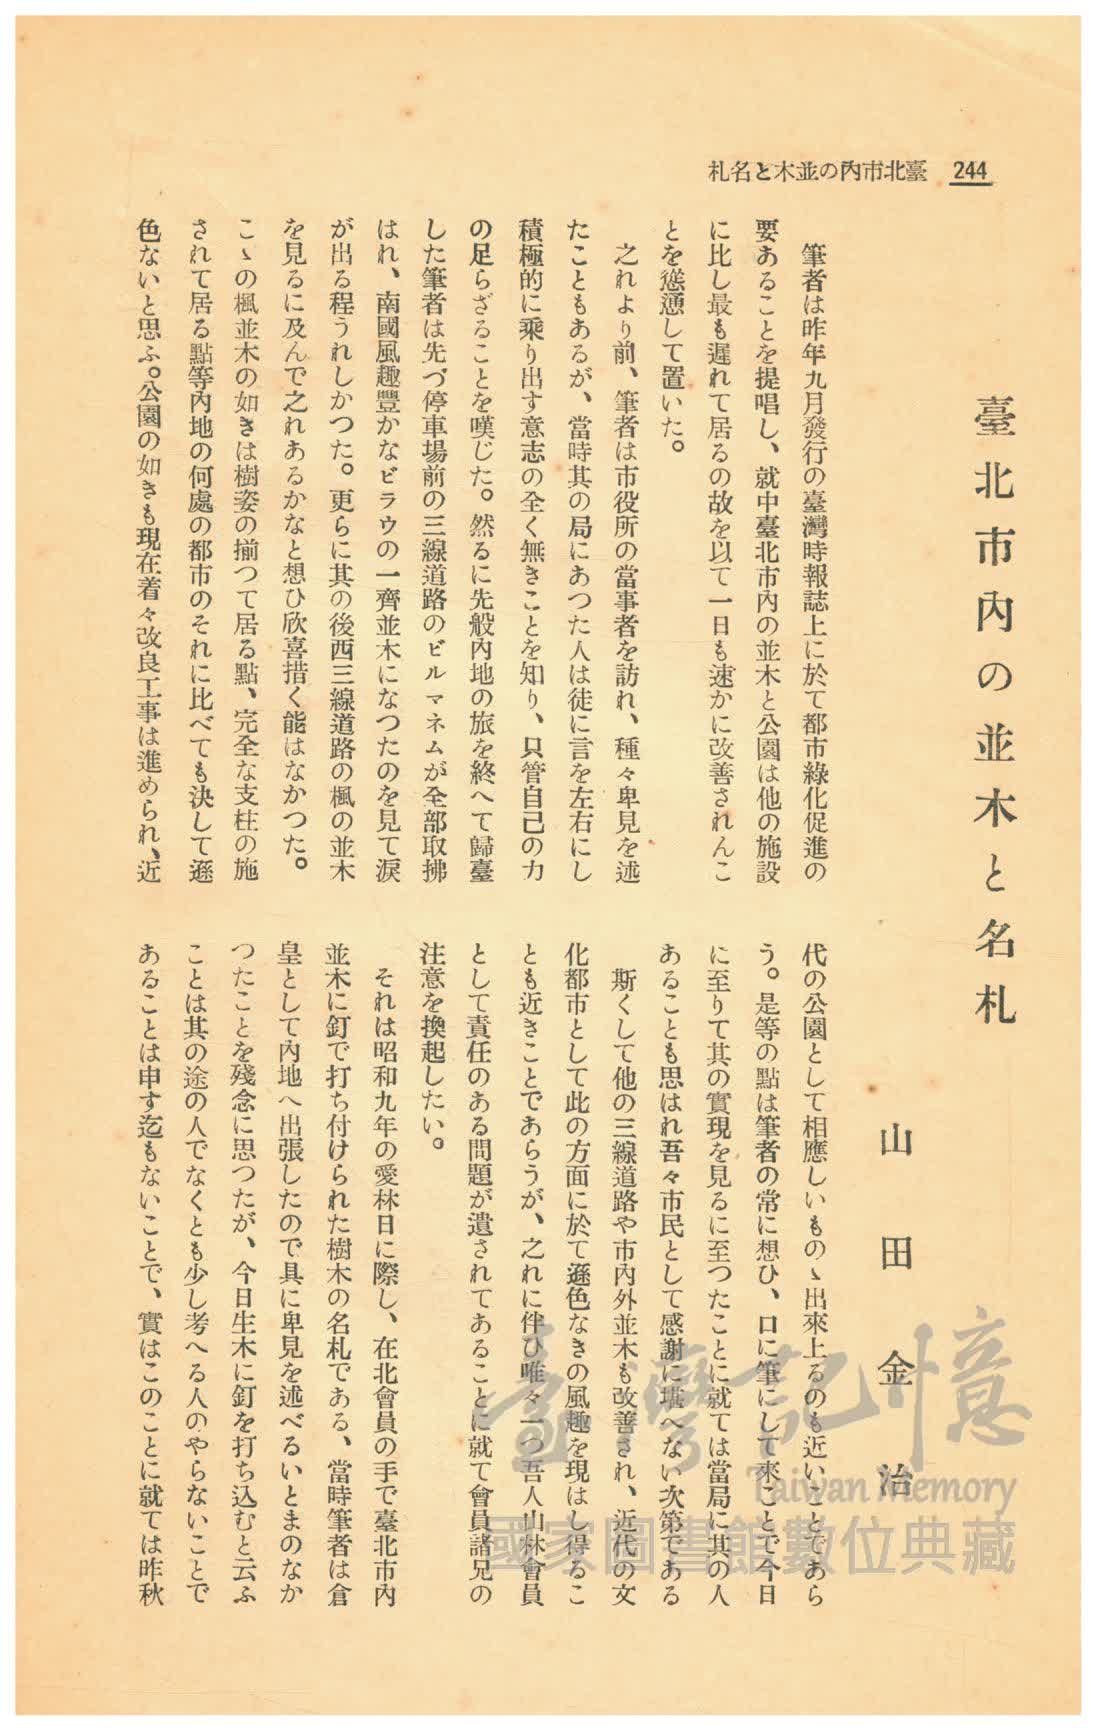 244 臺北市內の並木と名札
臺北市內の並木と名札
山田金治
筆者は昨年九月發行の臺灣時報誌上に於て都市綠化促進の
要あることを提唱し、就中臺北市內の並木と公園は他の施設
に比し最も遲れて居るの故を以て一日も速かに改善されんこ
とを慫慂して置いた。
之れより前、筆者は市役所の當事者を訪れ、種々卑見を述
たこともあるが、當時其の局にあつた人は徒に言を左右にし
積極的に乘り出す意志の全く無きことを知り、只管自己の力
の足らざることを嘆じた。然るに先般內地の旅を終へて歸臺
した筆者は先づ停車場前の三線道路のビルマネムが全部取拂
はれ、南國風趣豐かなビラウの一齊並木になつたのを見て淚
が出る程うれしかつた。更らに其の後西三線道路の楓の並木
を見るに及んで之れあるかなと想ひ欣喜措く能はなかつた。
こゝの楓並木の如きは樹姿の揃つて居る點、完全な支柱の施
されて居る點等內地の何處の都市のそれに比べても決して遜
色ないと思ふ。公園の如きも現在着々改良工事は進められ、近
代の公園として相應しいものゝ出來上るのも近いことであら
う。是等の點は筆者の常に想ひ、口に筆にして來ことで今日
に至りて其の實現を見るに至つたことに就ては當局に其の人
あることも思はれ吾々市民として感謝に堪へない次第である
斯くして他の三線道路や市內外並木も改善され、近代の文
化都市として此の方面に於て遜色なきの風趣を現はし得るこ
とも近きことであらうが、之れに伴ひ唯々一つ吾人山林會員
として責任のある問題が遺されてあることに就て會員諸兄の
注意を換起したい。
それは昭和九年の愛林日に際し、在北會員の手で臺北市內
並木に釘で打ち付けられた樹木の名札である、當時筆者は倉
皇として內地へ出張したので具に卑見を述べるいとまのなか
つたことを殘念に思つたが、今日生木に釘を打ち込むと云ふ
ことは其の途の人でなくとも少し考へる人のやらないことで
あることは申す迄もないことで、實はこのことに就ては昨秋
臺灣記憶
Taiwan Memory
國家圖書館數位典藏